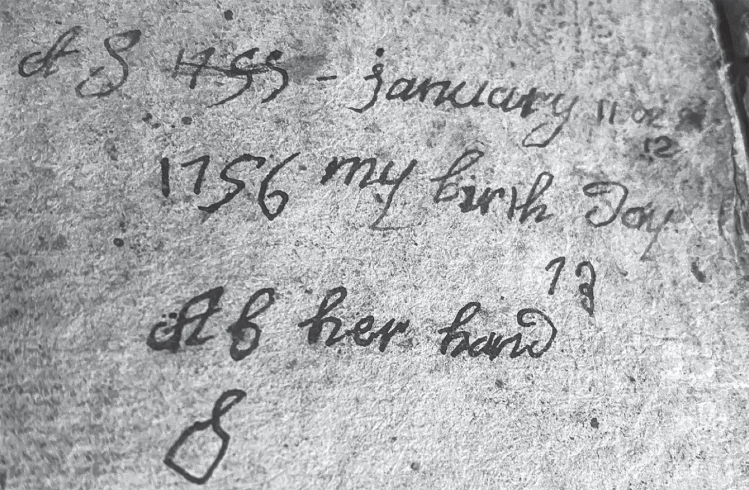 A 8 1755 - january 11 or
12
1756 my birth Day
13
A b her hand
8